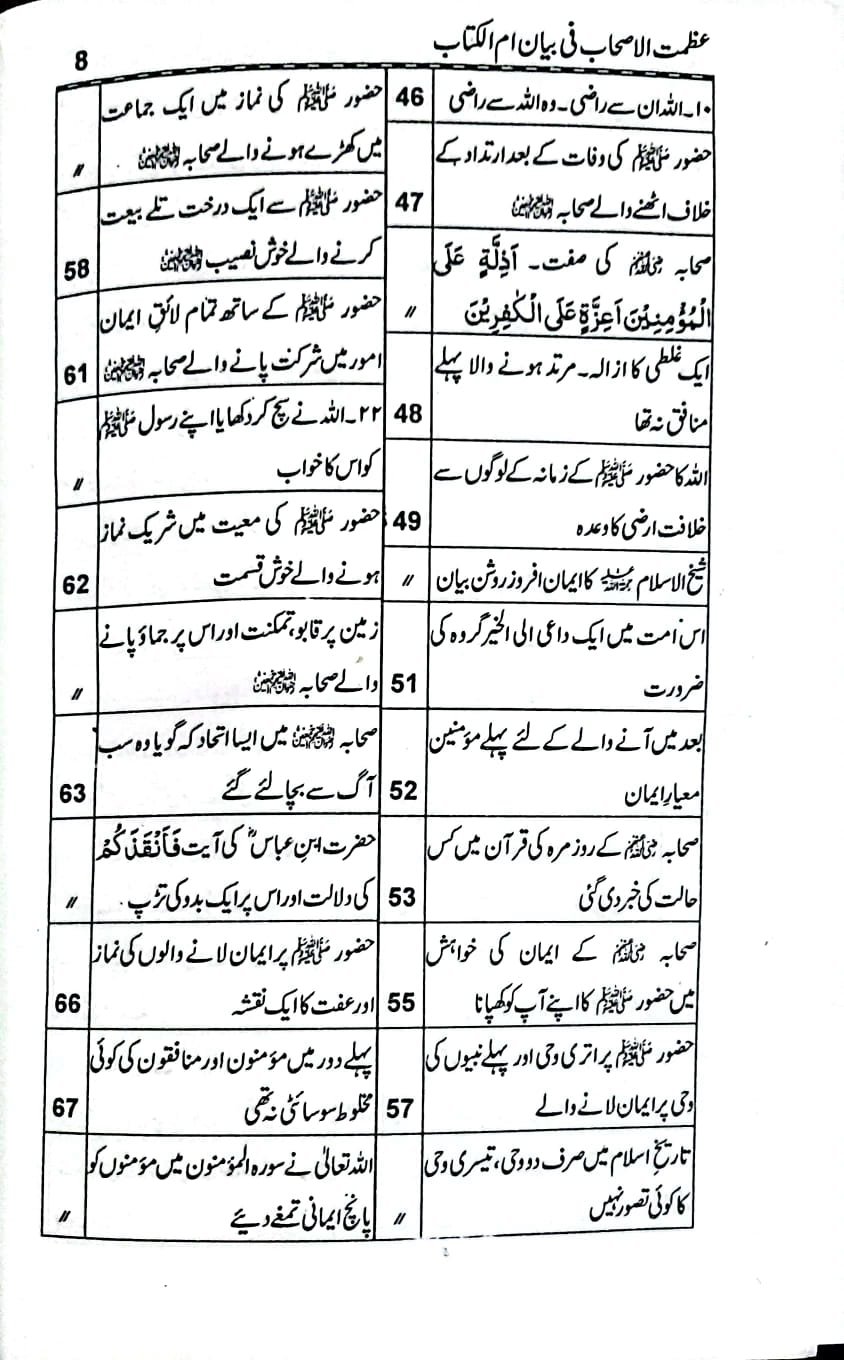 عظمت الاصحاب فی بیان ام الکتاب
8
۱۰۔اللہ ان سے راضی۔وہ اللہ سے راضی 46
حضور ﷺ کی وفات کے بعد ارتداد کے
خلاف اٹھنے والے صحابہ رضی اللہ عنہم 47
صحابہ رضی اللہ عنہم کی صفت۔ اَذِلَّةٍ عَلَی
الْمُؤْمِنِیْنَ اَعِزَّةٍ عَلَی الْکٰفِرِیْنَ 〃
ایک غلطی کا ازالہ۔مرتد ہونے والا پہلے
منافق نہ تھا 48
اللہ کا حضور ﷺ کے زمانہ کے لوگوں سے
خلافت ارضی کا وعدہ 49
شیخ الاسلام رحمۃ اللہ علیہ کا ایمان افروز روشن بیان 〃
اس امت میں ایک داعی الی الخیر گروہ کی
ضرورت 51
بعد میں آنے والے کے لئے پہلے مؤمنین
معیارِ ایمان 52
صحابہ رضی اللہ عنہم کے روزمرہ کی قرآن میں کس
حالت کی خبر دی گئی 53
صحابہ رضی اللہ عنہم کے ایمان کی خواہش
میں حضور ﷺ کا اپنے آپ کو کھپانا 55
حضور ﷺ پر اتری وحی اور پہلے نبیوں کی
وحی پر ایمان لانے والے 57
تاریخِ اسلام میں صرف دو وحی، تیسری وحی
کا کوئی تصور نہیں 〃
حضور ﷺ کی نماز میں ایک جماعت
میں کھڑے ہونے والے صحابہ رضی اللہ عنہم 〃
حضور ﷺ سے ایک درخت تلے بیعت
کرنے والے خوش نصیب رضی اللہ عنہم 58
حضور ﷺ کے ساتھ تمام لائقِ ایمان
امور میں شرکت پانے والے صحابہ رضی اللہ عنہم 61
۲۲۔اللہ نے سچ کر دکھایا اپنے رسول ﷺ
کو اس کا خواب 〃
حضور ﷺ کی معیت میں شریک نماز
ہونے والے خوش قسمت 62
زمین پر قابو، تمکنت اور اس پر جماؤ پانے
والے صحابہ رضی اللہ عنہم 〃
صحابہ رضی اللہ عنہم میں ایسا اتحاد کہ گویا وہ سب
آگ سے بچا لئے گئے 63
حضرت ابنِ عباسؓ کی آیت فَاَنْقَذَکُمْ
کی دلالت اور اس پر ایک بدو کی تڑپ 〃
حضور ﷺ پر ایمان لانے والوں کی نماز
اور عفت کا ایک نقشہ 66
پہلے دور میں مؤمنون اور منافقون کی کوئی
مخلوط سوسائٹی نہ تھی 67
اللہ تعالیٰ نے سورہ المؤمنون میں مؤمنوں کو
پانچ ایمانی تمغے دیئے 〃